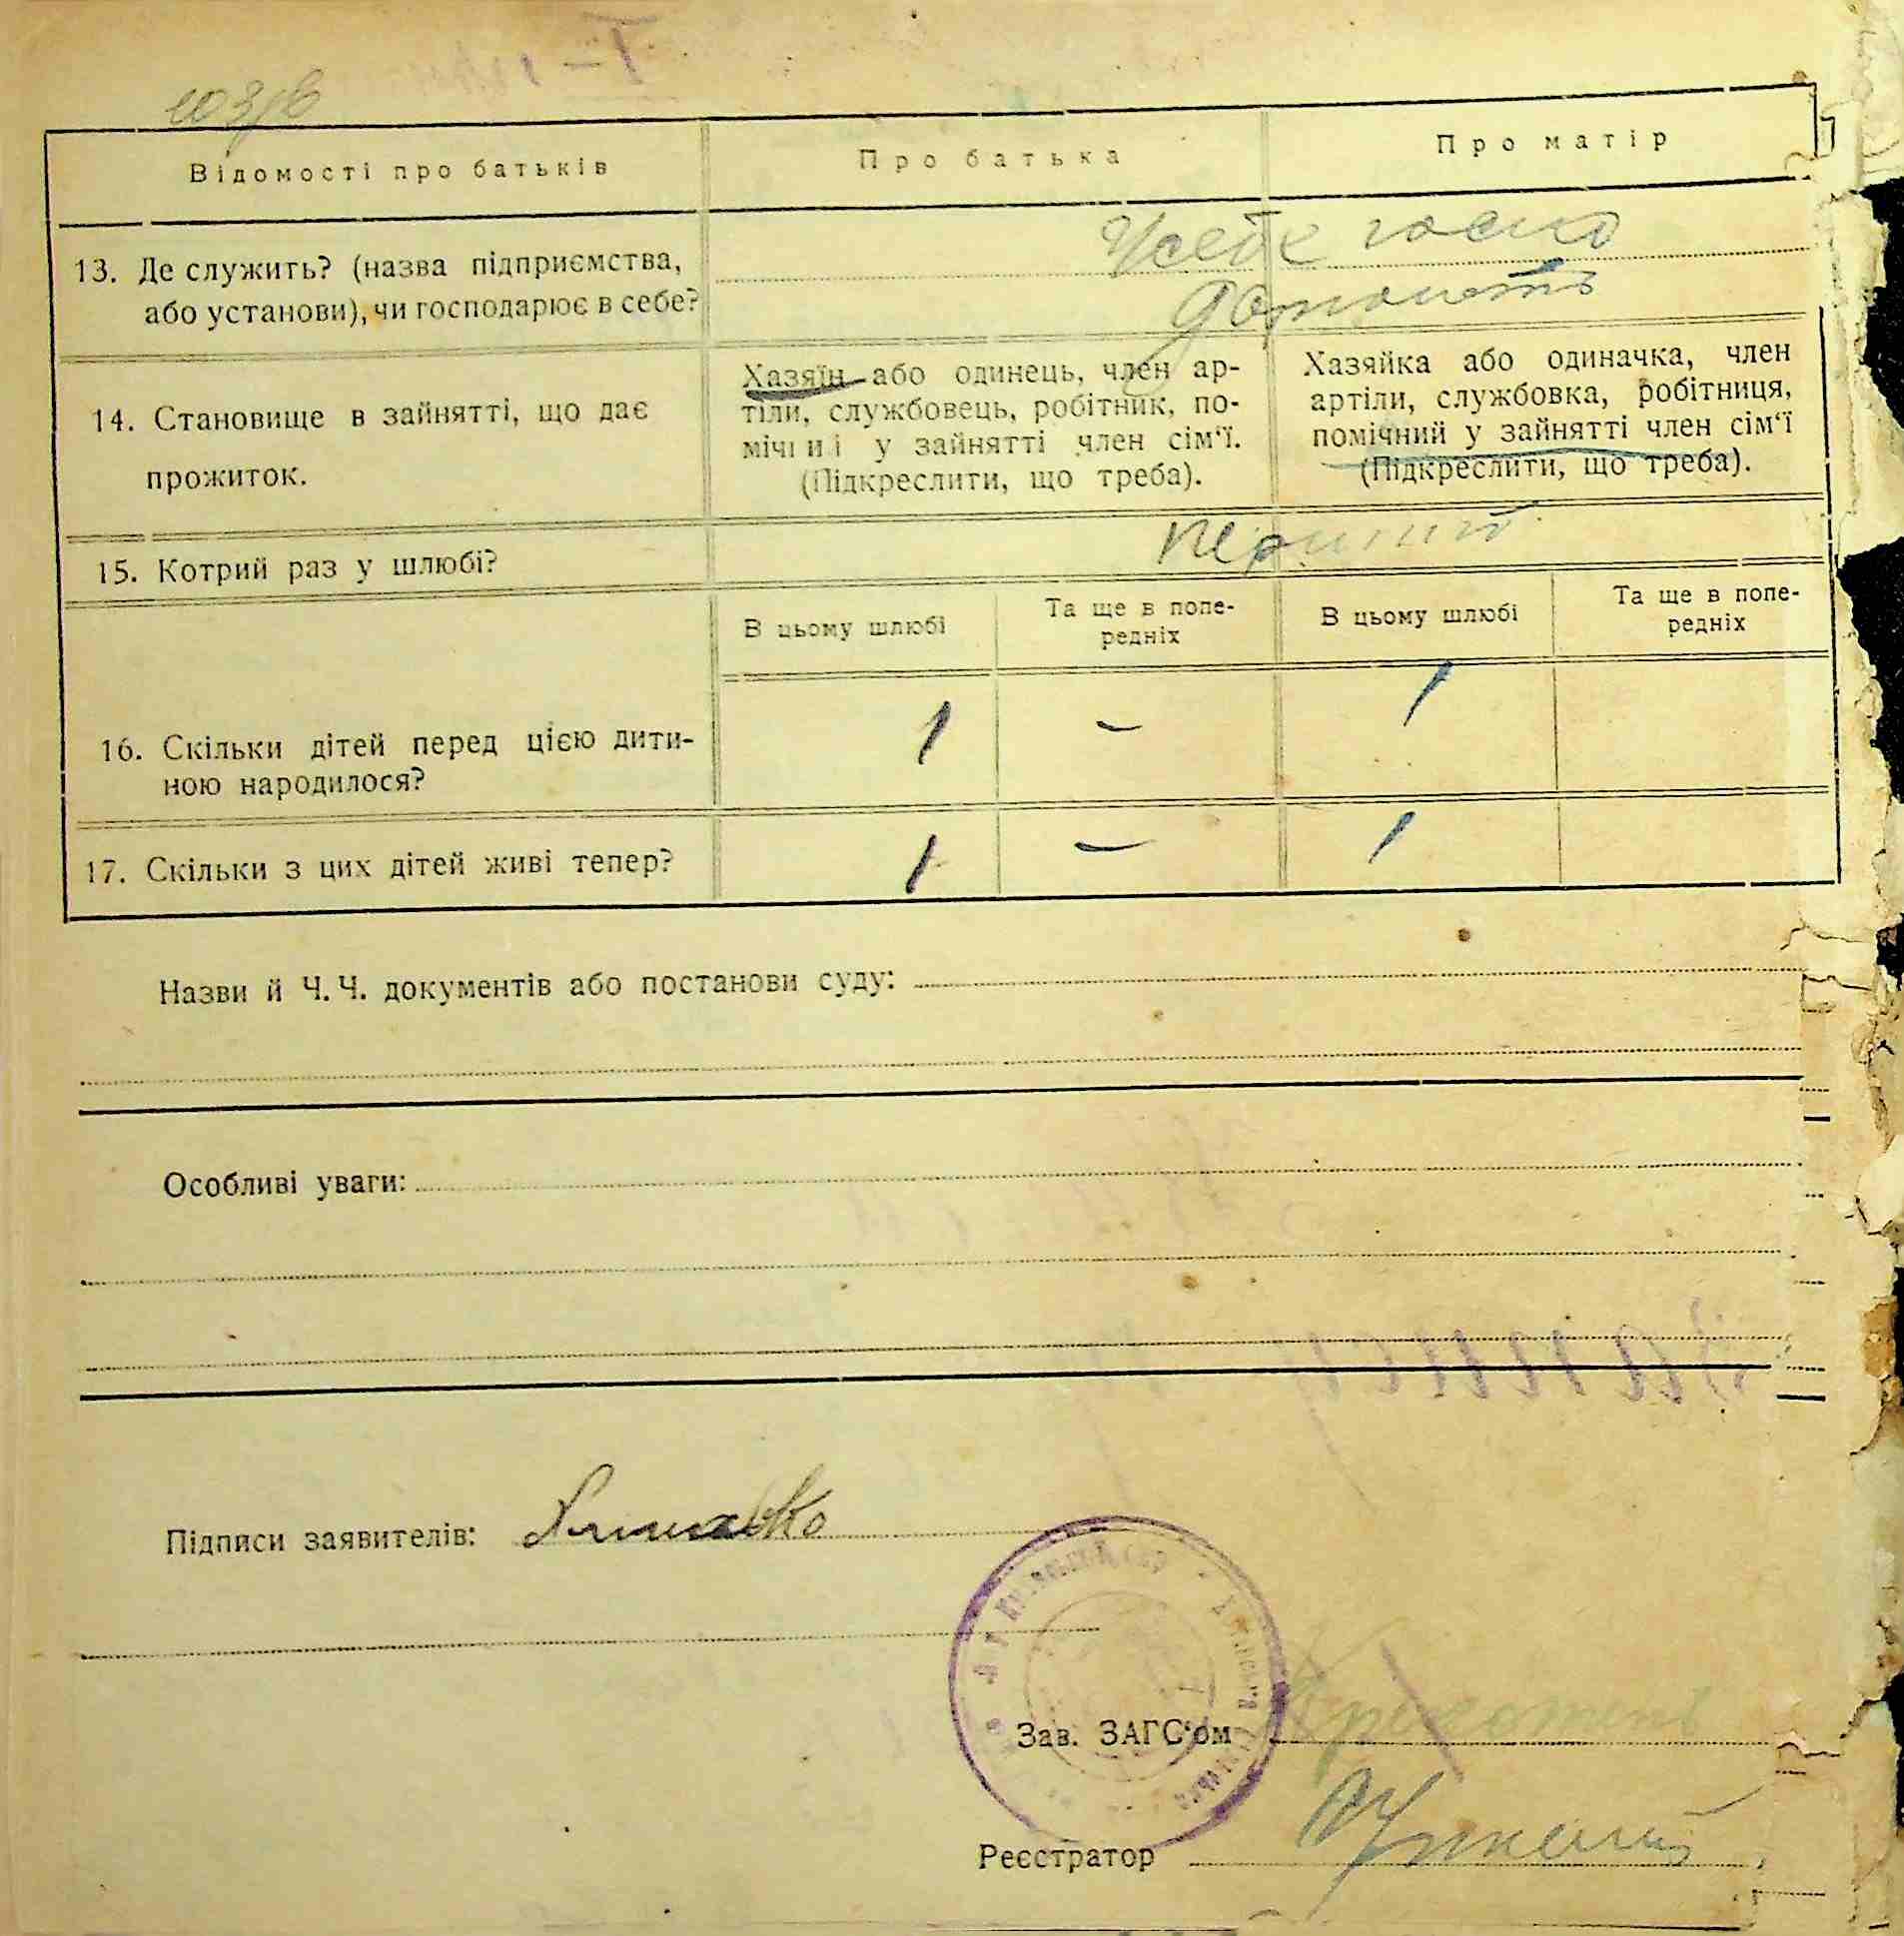 Відомості про батьків
Про батька
Про матір
13. Де служить? (назва підприємства,
або установи), чи господарює в себе?
У себе
14. Становище в зайнятті, що дає
прожиток.
Хазяїн або одинець, член ар-
тіли, службовець, робітник, по-
мічний у зайнятті член сім‘ї.
(Підкреслити, що треба).
Хазяйка або одиначка, член
артіли, службовка, робітниця,
помічний у зайнятті член сім‘ї
(Підкреслити, що треба).
15. Котрий раз у шлюбі?
перший
В цьому шлюбі
Та ще в попе-
редніх
В цьому шлюбі
Та ще в попе-
редніх
16. Скільки дітей перед цією дити-
ною народилося?
1 – 1
17. Скільки з цих дітей живі тепер?
1 – 1
Назви й Ч. Ч. документів або постанови суду:
Особливі уваги:
Підписи заявителів:
Зав. ЗАГС‘ом
Реєстратор